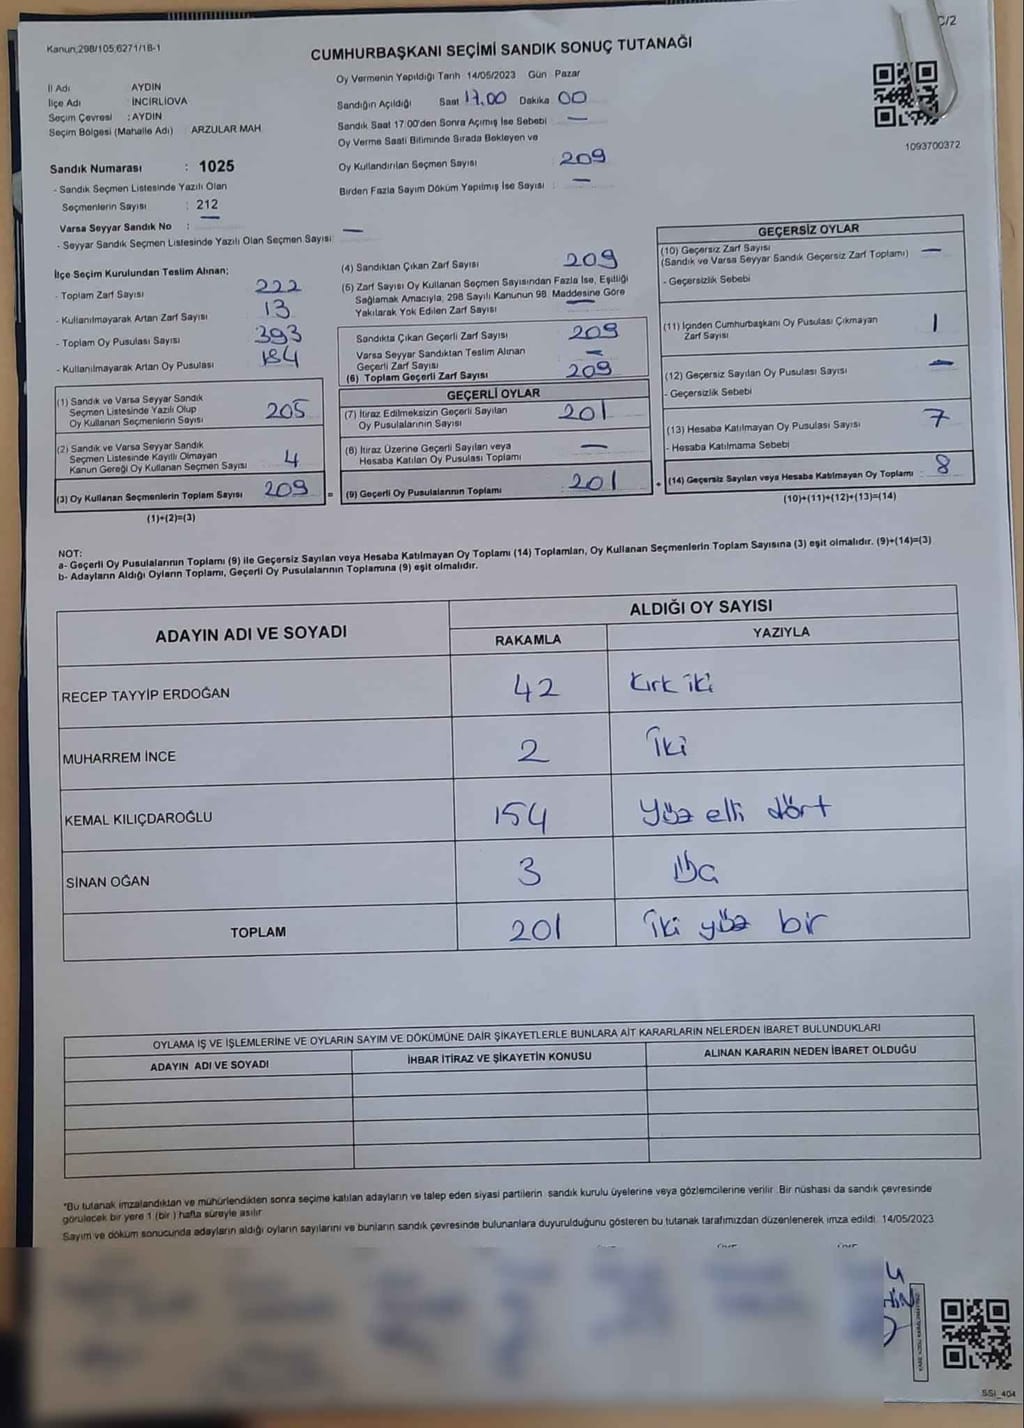 Kanun;298/105;6271/18-1
C/2
CUMHURBAŞKANI SEÇİMİ SANDIK SONUÇ TUTANAĞI
İl Adı AYDIN
İlçe Adı İNCİRLİOVA
Seçim Çevresi : AYDIN
Seçim Bölgesi (Mahalle Adı) ARZULAR MAH
Oy Vermenin Yapıldığı Tarih 14/05/2023 Gün Pazar
Sandığın Açıldığı Saat 17.00 Dakika 00
Sandık Saat 17:00'den Sonra Açımış İse Sebebi —
Oy Verme Saati Bitiminde Sırada Bekleyen ve
Oy Kullandırılan Seçmen Sayısı 209
Birden Fazla Sayım Döküm Yapılmış İse Sayısı : —
1093700372
Sandık Numarası : 1025
- Sandık Seçmen Listesinde Yazılı Olan
Seçmenlerin Sayısı : 212
Varsa Seyyar Sandık No : —
- Seyyar Sandık Seçmen Listesinde Yazılı Olan Seçmen Sayısı —
İlçe Seçim Kurulundan Teslim Alınan;
- Toplam Zarf Sayısı 222
- Kullanılmayarak Artan Zarf Sayısı 13
- Toplam Oy Pusulası Sayısı 393
- Kullanılmayarak Artan Oy Pusulası 184
(1) Sandık ve Varsa Seyyar Sandık
Seçmen Listesinde Yazılı Olup
Oy Kullanan Seçmenlerin Sayısı 205
(2) Sandık ve Varsa Seyyar Sandık
Seçmen Listesinde Kayıtlı Olmayan
Kanun Gereği Oy Kullanan Seçmen Sayısı 4
(3) Oy Kullanan Seçmenlerin Toplam Sayısı 209 =
(1)+(2)=(3)
(4) Sandıktan Çıkan Zarf Sayısı 209
(5) Zarf Sayısı Oy Kullanan Seçmen Sayısından Fazla İse, Eşitliği
Sağlamak Amacıyla, 298 Sayılı Kanunun 98. Maddesine Göre
Yakılarak Yok Edilen Zarf Sayısı —
Sandıkta Çıkan Geçerli Zarf Sayısı 209
Varsa Seyyar Sandıktan Teslim Alınan
Geçerli Zarf Sayısı —
(6) Toplam Geçerli Zarf Sayısı 209
GEÇERLİ OYLAR
(7) İtiraz Edilmeksizin Geçerli Sayılan
Oy Pusulalarının Sayısı 201
(8) İtiraz Üzerine Geçerli Sayılan veya
Hesaba Katılan Oy Pusulası Toplamı —
(9) Geçerli Oy Pusulalarının Toplamı 201 +
GEÇERSİZ OYLAR
(10) Geçersiz Zarf Sayısı
(Sandık ve Varsa Seyyar Sandık Geçersiz Zarf Toplamı) —
- Geçersizlik Sebebi
(11) İçinden Cumhurbaşkanı Oy Pusulası Çıkmayan
Zarf Sayısı 1
(12) Geçersiz Sayılan Oy Pusulası Sayısı —
- Geçersizlik Sebebi
(13) Hesaba Katılmayan Oy Pusulası Sayısı 7
- Hesaba Katılmama Sebebi
(14) Geçersiz Sayılan veya Hesaba Katılmayan Oy Toplamı 8
(10)+(11)+(12)+(13)=(14)
NOT:
a- Geçerli Oy Pusulalarının Toplamı (9) ile Geçersiz Sayılan veya Hesaba Katılmayan Oy Toplamı (14) Toplamları, Oy Kullanan Seçmenlerin Toplam Sayısına (3) eşit olmalıdır. (9)+(14)=(3)
b- Adayların Aldığı Oyların Toplamı, Geçerli Oy Pusulalarının Toplamına (9) eşit olmalıdır.
ADAYIN ADI VE SOYADI
ALDIĞI OY SAYISI
RAKAMLA YAZIYLA
RECEP TAYYİP ERDOĞAN 42 kırk iki
MUHARREM İNCE 2 iki
KEMAL KILIÇDAROĞLU 154 yüz elli dört
SİNAN OĞAN 3 üç
TOPLAM 201 iki yüz bir
OYLAMA İŞ VE İŞLEMLERİNE VE OYLARIN SAYIM VE DÖKÜMÜNE DAİR ŞİKAYETLERLE BUNLARA AİT KARARLARIN NELERDEN İBARET BULUNDUKLARI
ADAYIN ADI VE SOYADI İHBAR İTİRAZ VE ŞİKAYETİN KONUSU ALINAN KARARIN NEDEN İBARET OLDUĞU
"Bu tutanak imzalandıktan ve mühürlendikten sonra seçime katılan adayların ve talep eden siyasi partilerin sandık kurulu üyelerine veya gözlemcilerine verilir. Bir nüshası da sandık çevresinde
görülecek bir yere 1 (bir) hafta süreyle asılır
Sayım ve döküm sonucunda adayların aldığı oyların sayılarını ve bunların sandık çevresinde bulunanlara duyurulduğunu gösteren bu tutanak tarafımızdan düzenlenerek imza edildi. 14/05/2023
SSI_404